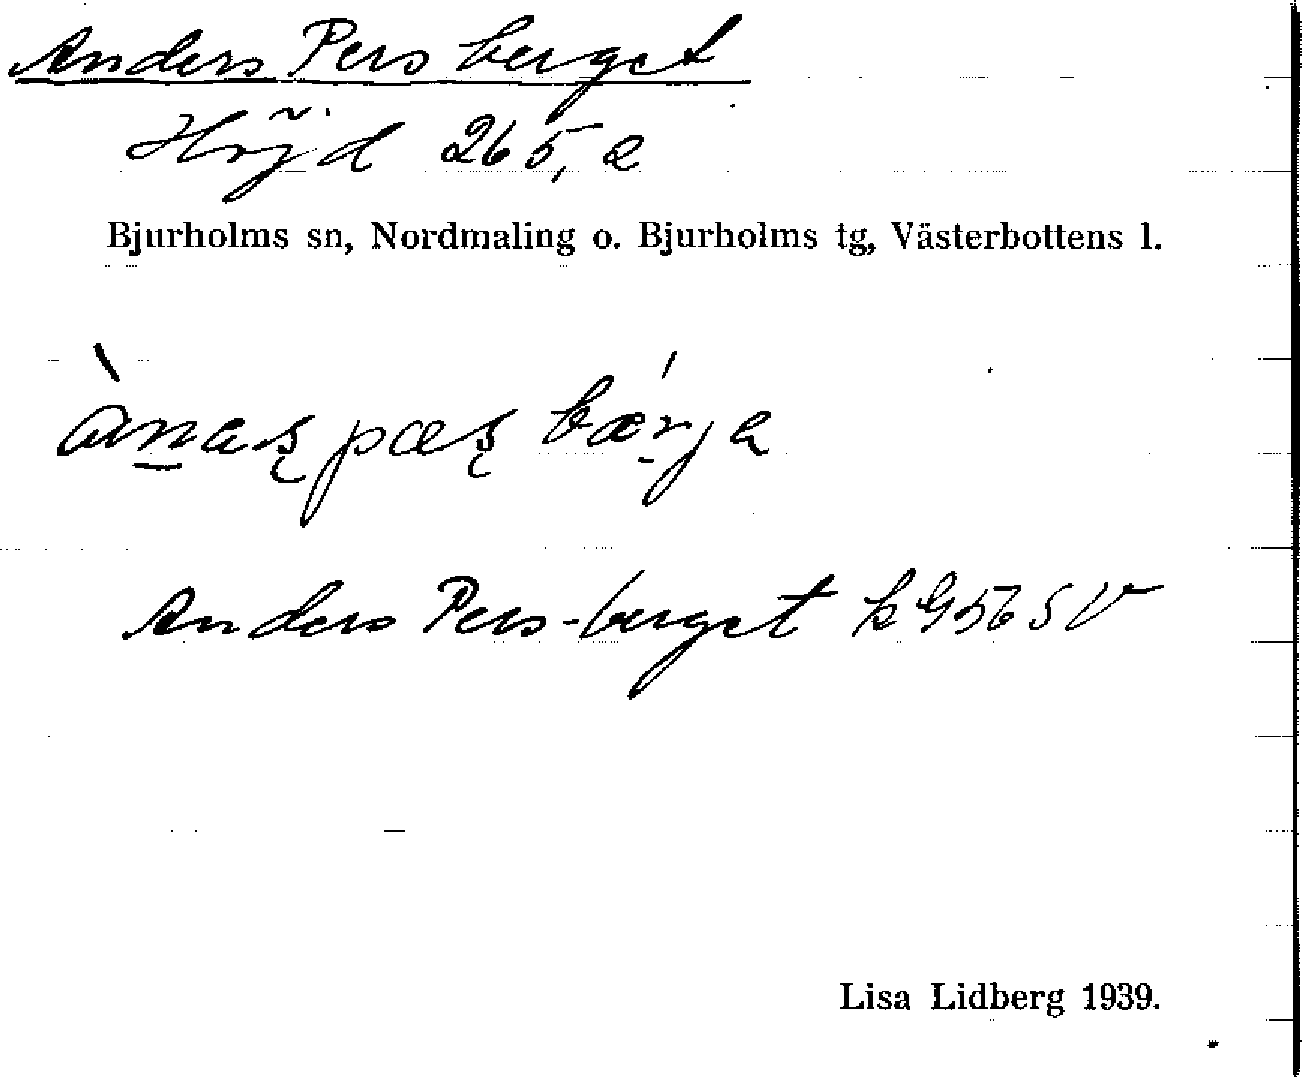 Anders Persberget
Höjd 265,2
Bjurholms sn, Nordmaling o. Bjurholms tg, Västerbottens l.
Anders Pers-berget
Lisa Lidberg 1939.